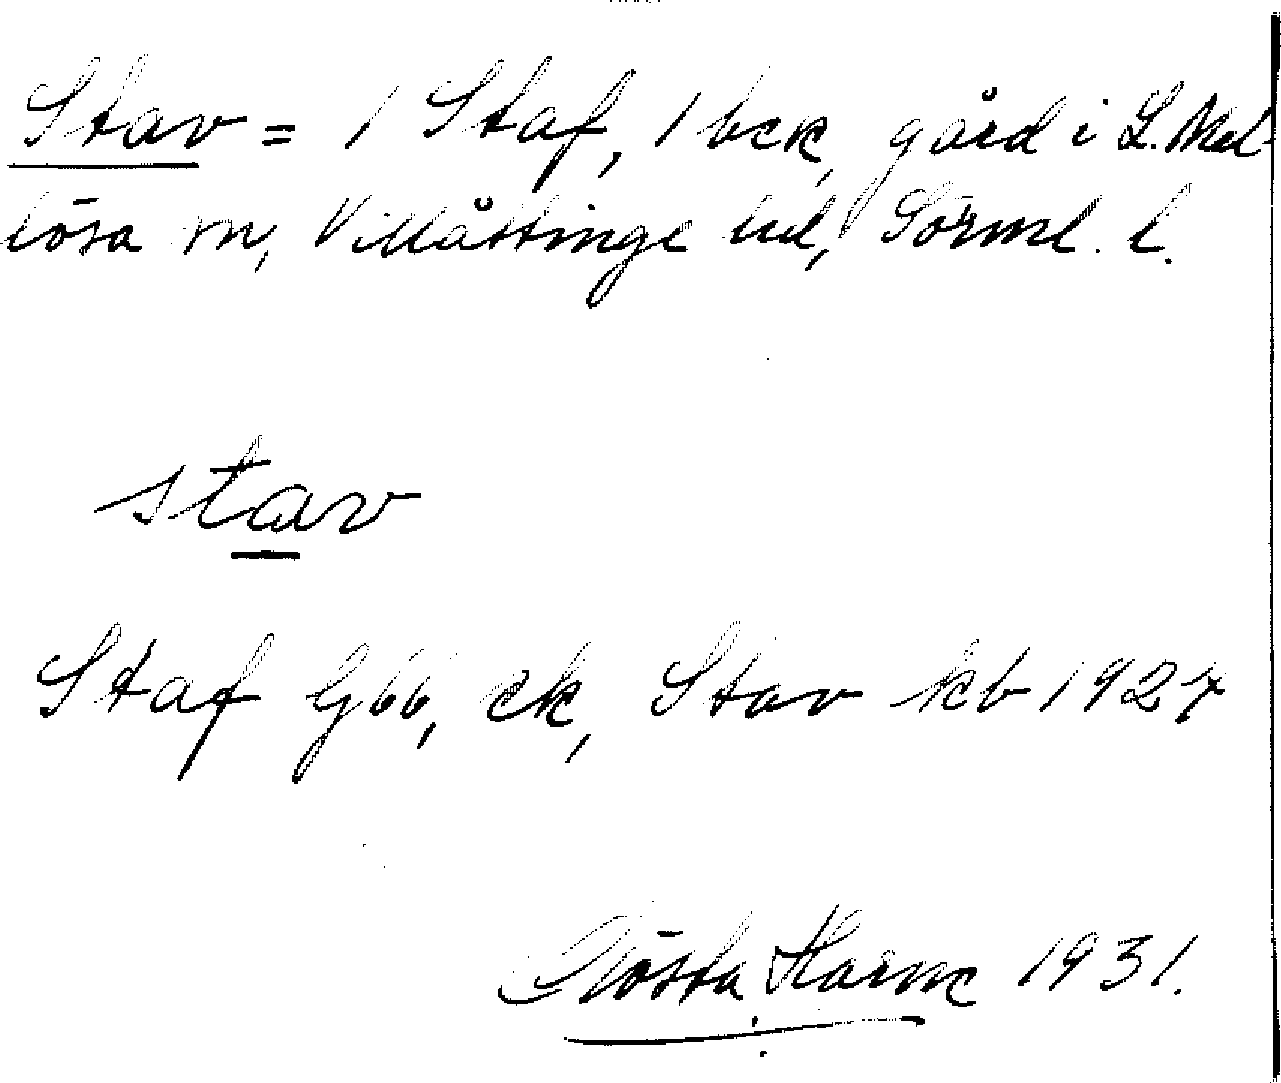 Stav = 1 Staf, 1 bek, gård i L. Mel-
lösa sn, Villåttinge hd, Sörml. l.
stav
Staf G66, ek, Stav kb 1927
Gösta Harne 1931.